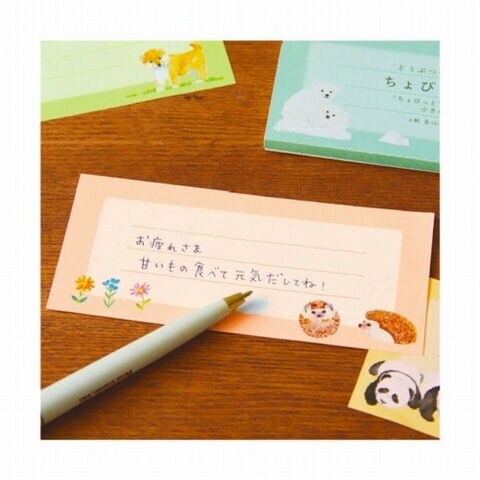 どうぶつ
ちょび
"ちょびっと
小さ
お疲れさま
甘いもの食べて 元気だしてね!